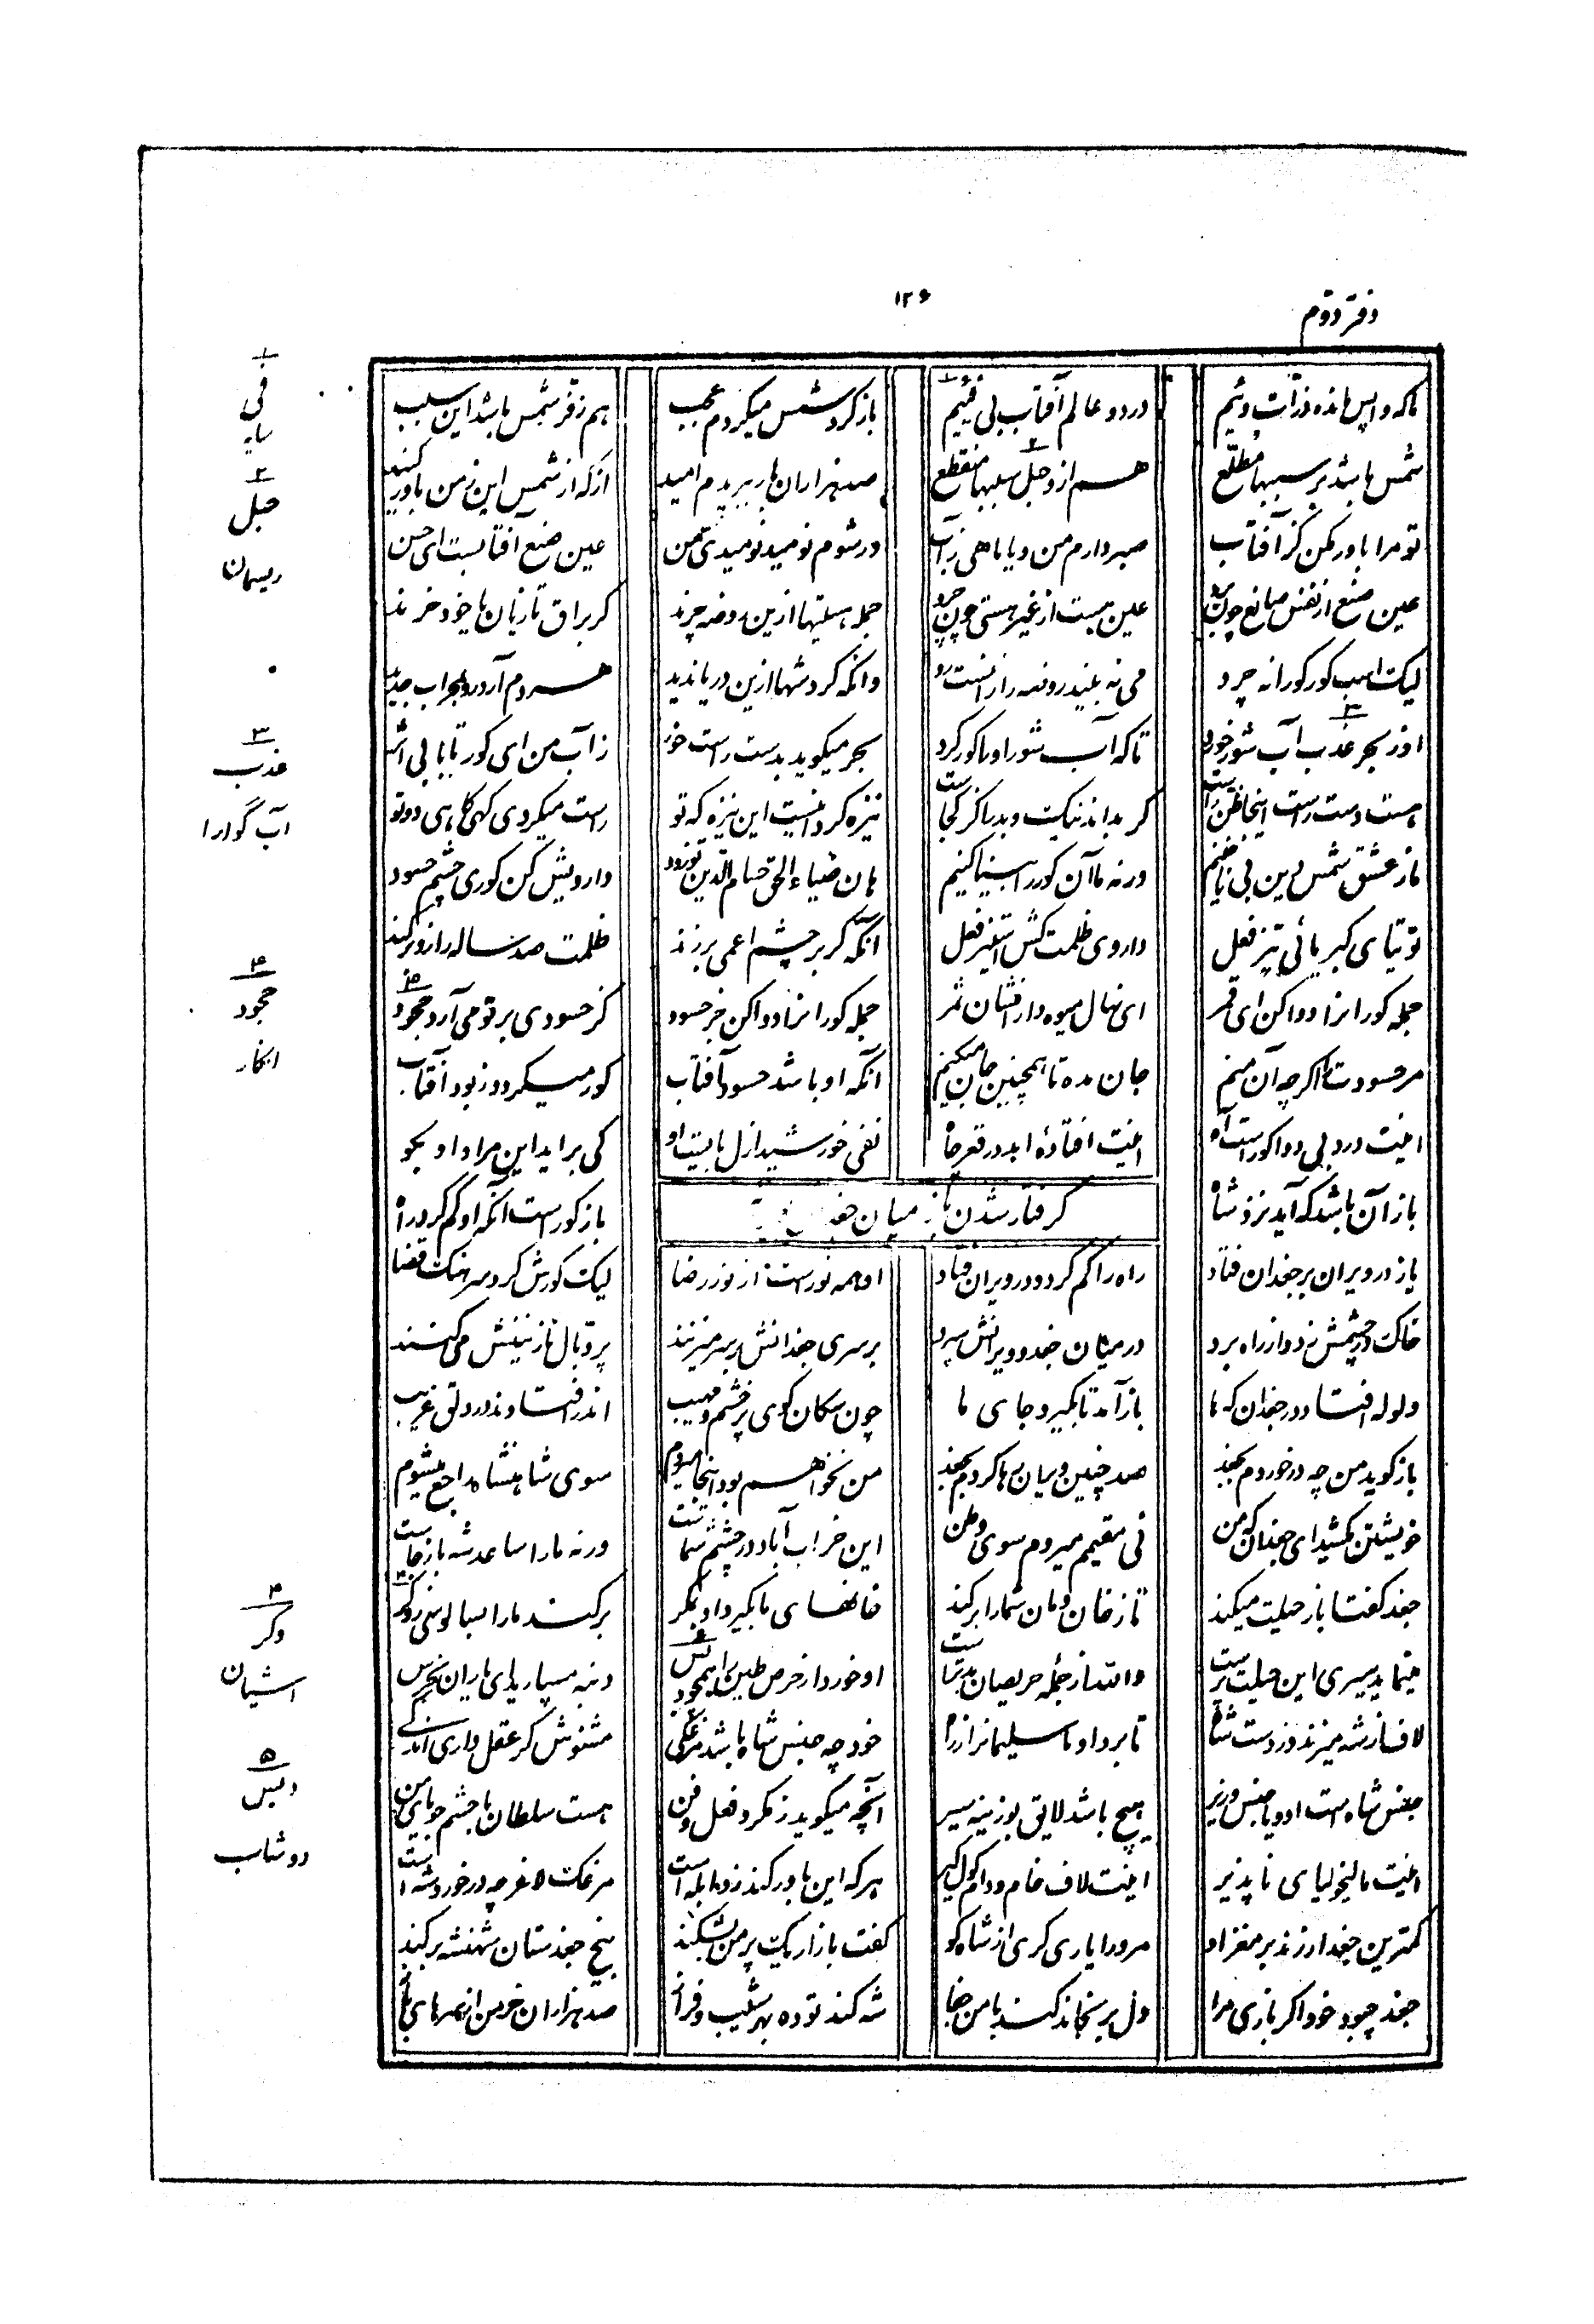 دفتر دوم
۱۲۶
ما که واپس مانده ذرات ویئیم در دو عالم آفتاب بی فیئیم باز گرد شمس میگردم عجب هم ز فر شمس باشد این سبب
شمس باشد بر سببها مطلع هم از و حبل سببها منقطع صد هزاران بار ببریدم امید از که از شمس این ز من باور کنید
تو مرا باور مکن کز آفتاب صبر دارم من و یا ماهی ز آب ور شوم نومید نومیدی من عین صنع آفتابست ای حسن
عین صنع از نفس صانع چون برد عین هست از غیر هستی چون چرد جمله هستیها ازین روضه چرند گر براق تازیان یا خود خرند
لیک اسب کور کورانه چرد می نه بیند روضه را زانست رد وانکه گردشها ازین دریا ندید هر دم آرد رو بمحراب جدید
او ز بحر عذب آب شور خورد تا که آب شور او را کور کرد بحر میگوید بدست راست خور ز آب من ای کور تا یابی بصر
هست دست راست اینجا ظن راست کو بداند نیک و بد را کز کجاست نیزه گردانیست این نیزه که تو راست میگردی گهی گاهی دوتو
ما ز عشق شمس دین بی ناخنیم ورنه ما آن کور را بینا کنیم هان ضیاء الحق حسام الدین تو زود دارویش کن کوری چشم حسود
توتیای کبریائی تیز فعل داروی ظلمت کش استیز فعل آنکه گر بر چشم اعمی بر زند ظلمت صد ساله را زو بر کند
جمله کورانرا دوا کن ای قمر ای نهال میوه دار افشان ثمر جمله کورانرا دوا کن جز حسود کز حسودی بر تو می آرد جحود
مر حسودت را اگر چه آن منم جان مده تا همچنین جان میکنم آنکه او باشد حسود آفتاب کور میگردد ز بود آفتاب
اینت درد بی دوا کوراست آه اینت افتاده ابد در قعر چاه نفی خورشید ازل بایست او کی بر آید این مراد او بگو
باز آن باشد که آید نزد شاه باز کور است آنکه او گم کرد راه
گرفتار شدن باز میان
راه را گم کرد و در ویران فتاد باز در ویران بر جغدان فتاد او همه نور است از نور رضا لیک کورش کرد سرهنگ قضا
خاک در چشمش زد و از راه برد در میان جغد و ویرانش سپرد بر سری جغدانش بر سر میزنند پر و بال نازنینش می کنند
ولوله افتاد در جغدان که ها باز آمد تا بگیرد جای ما چون سگان کوی پر خشم و مهیب اندر افتادند در دلق غریب
باز گوید من چه در خوردم بجغد صد چنین ویران رها کردم بجغد من نخواهم بود اینجا میروم سوی شاهنشاه راجع میشوم
خویشتن مکشید ای جغدان که من نی مقیمم میروم سوی وطن این خراب آباد در چشم شماست ورنه ما را ساعد شه باز جاست
جغد گفتا باز حیلت میکند تا ز خان و مان شما را بر کند خانهای ما بگیرد او بمکر بر کند ما را بسالوسی ز وکر
مینماید سیری این حیلت پرست والله از جمله حریصان بدتر است او خورد از حرص طین را همچو دبس دنبه مسپارید ای یاران بخرس
لاف از شه میزند وز دست شاه تا برد او ما سلیمانرا ز راه خود چه جنس شاه باشد مرغکی مشنوش گر عقل داری اندکی
جنس شاه است او و یا جنس وزیر هیچ باشد لایق لوزینه سیر آنچه میگوید ز مکر و فعل و فن هست سلطان با حشم جویای من
اینت مالیخولیای ناپذیر اینت لاف خام و دام گول گیر هر که این باور کند از ابلهی است مرغک لاغر چه در خورد شهی است
کمترین جغد ار زند بر مغز او مر ورا یاری گری از شاه کو گفت باز ار یک پر من بشکند بیخ جغدستان شهنشه بر کند
جغد چبود خود اگر بازی مرا دل برنجاند کند با من جفا شه کند توده بهر شیب و فراز صد هزاران خرمن از سرهای باز
۱
فی
سایه
۲
حبل
ریسمان
۳
عذب
آب گوارا
۴
جحود
انکار
۴
وکر
آشیان
۵
دبس
دوشاب